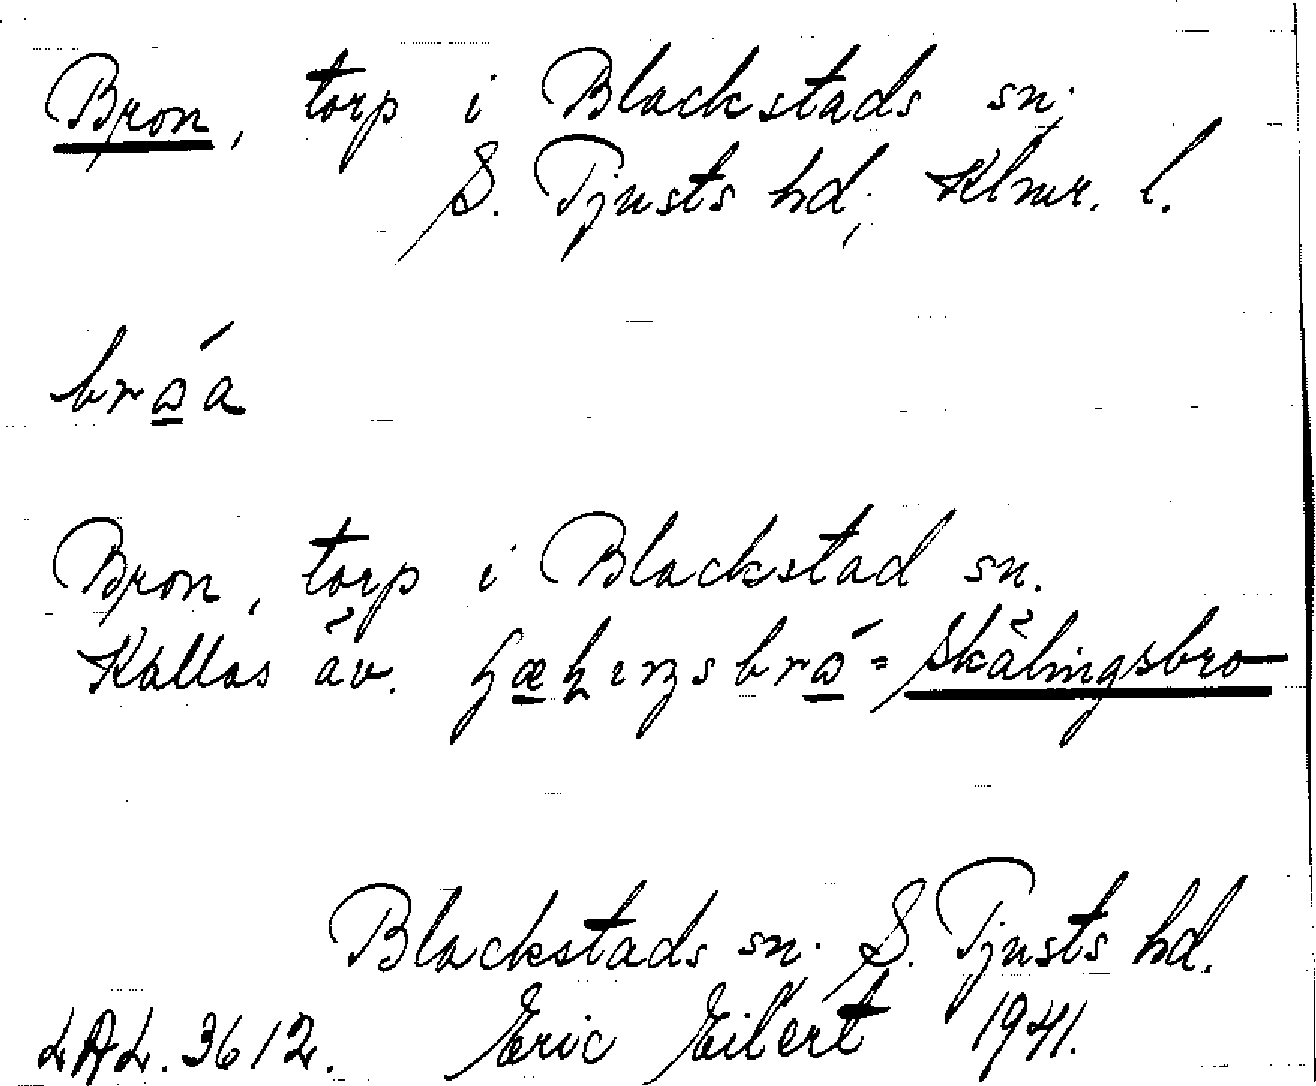 Bron, torp i Blackstads sn.
S. Tjusts hd, Klmr. l.
Bron, torp i Blackstad sn.
Kallas äv. = Skälingsbro
Blackstads sn. S. Tjusts hd.
LAL. 3612. Eric Eilert 1941.